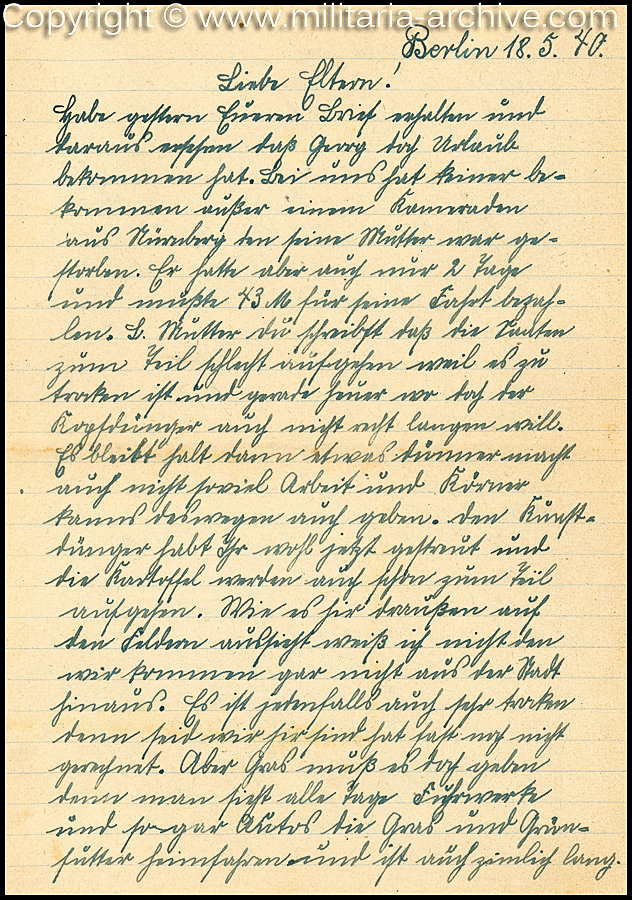 Copyright © www.militaria-archive.com
Berlin 18. 5. 40.
Liebe Eltern!
Habe gestern Eueren Brief erhalten und
daraus ersehen daß Georg doch Urlaub
bekommen hat. Bei uns hat keiner be-
kommen außer einem Kameraden
aus Nürnberg den seine Mutter war ge-
storben. Er hatte aber auch nur 2 Tage
und mußte 43 M für seine Fahrt bezah-
len. L. Mutter du schreibst daß die Saaten
zum Teil schlecht aufgehen weil es zu
trocken ist und gerade heuer wo doch der
Kopfdünger auch nicht recht langen will.
Es bleibt halt dann etwas dünner macht
auch nicht soviel Arbeit und Körner
kanns deswegen auch geben. Den Kunst-
dünger habt Ihr wohl jetzt gestreut und
die Kartoffel werden auch schon zum Teil
aufgehen. Wie es hir draußen auf
den Feldern aussieht weiß ich nicht den
wir kommen gar nicht aus der Stadt
hinaus. Es ist jedenfalls auch sehr trocken
denn seid wir hir sind hat fast noch nicht
gerechnet. Aber Gras muß es doch geben
denn man sieht alle Tage Fuhrwerke
und so-gar Autos die Gras und Grün-
futter heimfahren und ist auch zimlich lang.